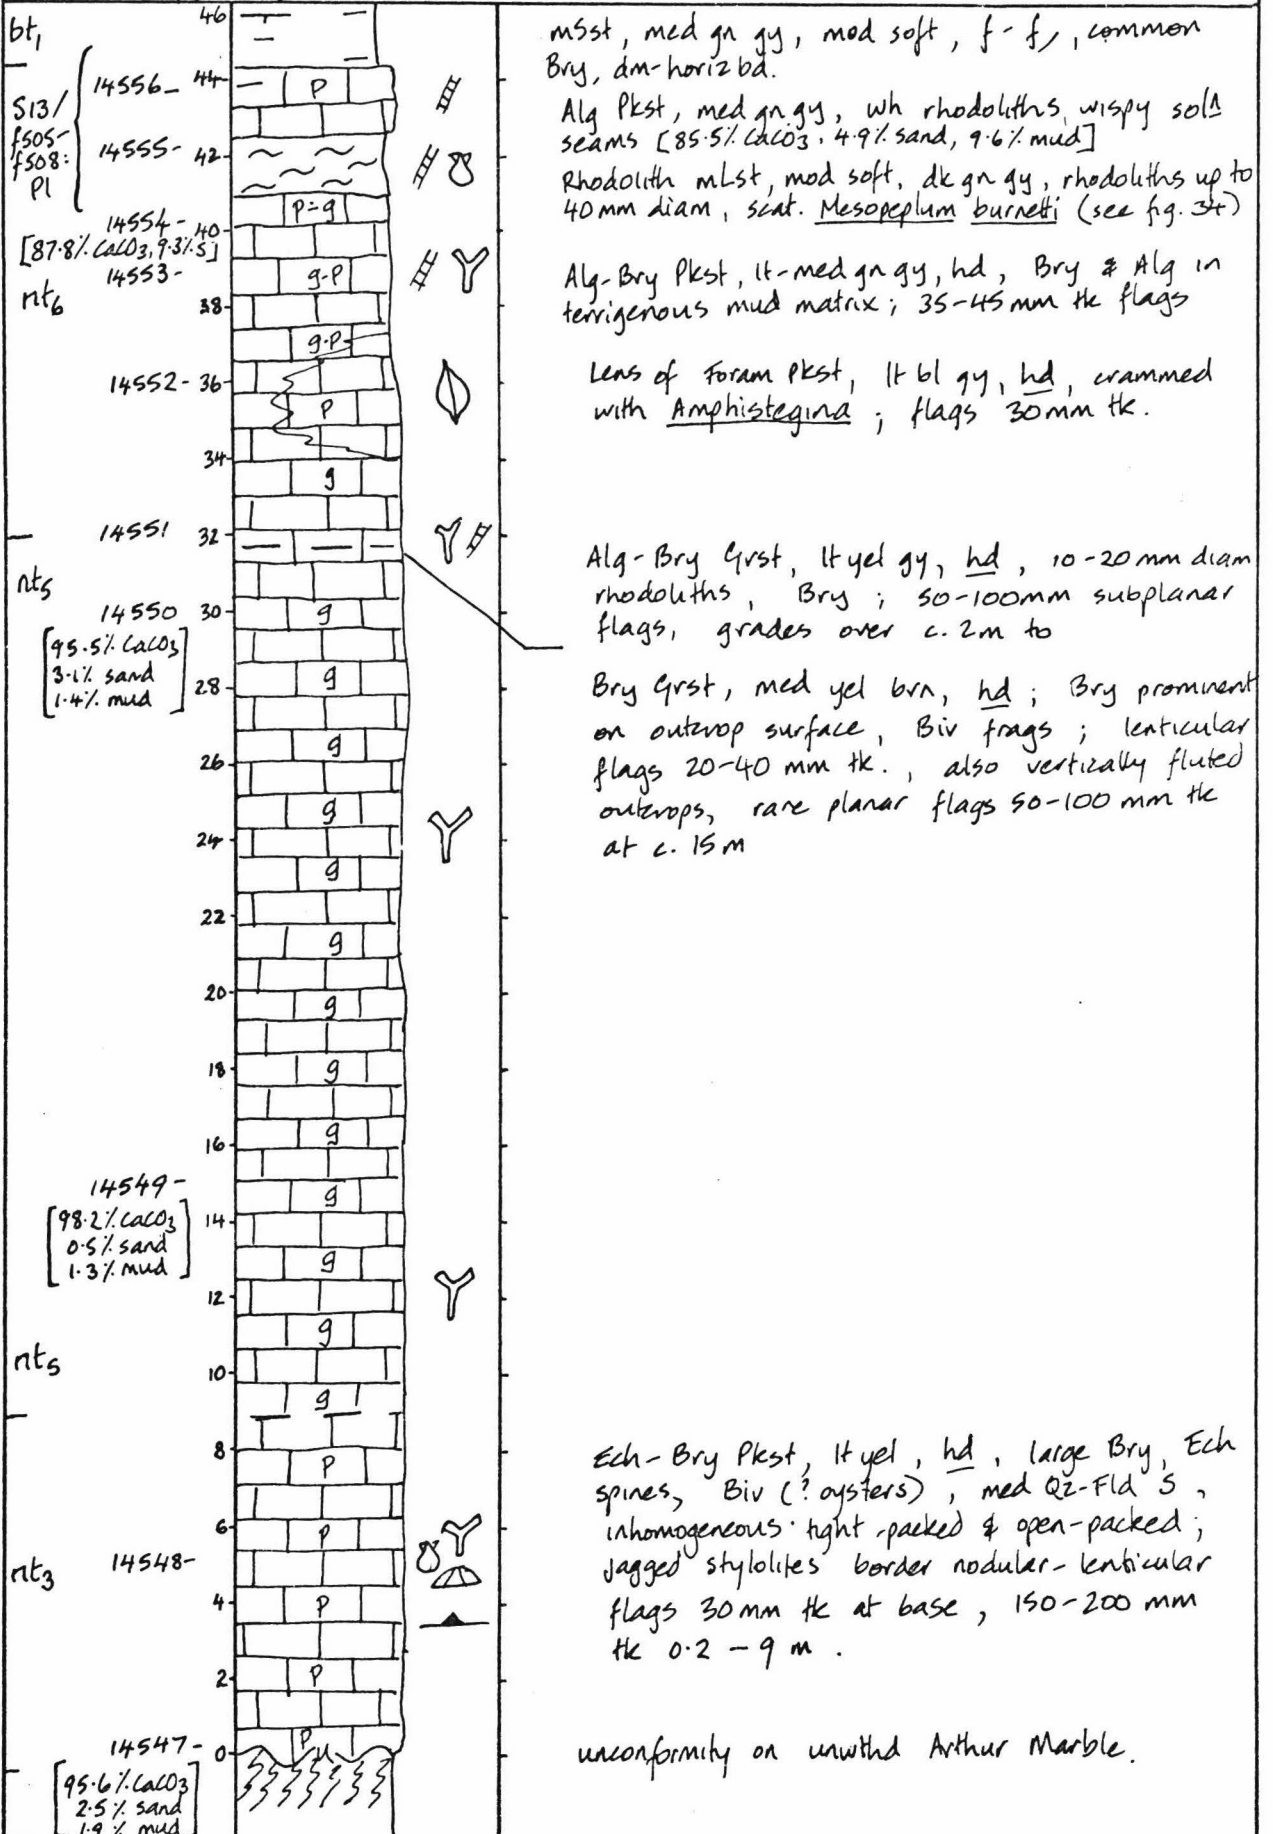 bt₁
S13/
f505-
f508:
Pl
14556-
14555-
14554-
[87.8% CaCO₃, 9.3% S]
14553-
nt₆
14552-
14551
nt₅
14550
[95.5% CaCO₃
3.1% sand
1.4% mud]
14549-
[98.2% CaCO₃
0.5% sand
1.3% mud]
nt₅
nt₃
14548-
14547-
[95.6% CaCO₃
2.5% sand
1.9% mud
46
44
42
40
38
36
34
32
30
28
26
24
22
20
18
16
14
12
10
8
6
4
2
0
P
P=g
g-P
g-P
P
g
g
g
g
g
g
g
g
g
g
g
g
g
g
P
P
P
P
P
mSst, med gn gy, mod soft, f-f, common
Bry, dm-horiz bd.
Alg Pkst, med gn gy, wh rhodoliths, wispy solⁿ
seams [85.5% CaCO₃, 4.9% sand, 9.6% mud]
Rhodolith mLst, mod soft, dk gn gy, rhodoliths up to
40mm diam, scat. Mesopeplum burnetti (see fig. 34)
Alg-Bry Pkst, lt-med gn gy, hd, Bry & Alg in
terrigenous mud matrix; 35-45 mm tk flags
Lens of Foram Pkst, lt bl gy, hd, crammed
with Amphistegina; flags 30mm tk.
Alg-Bry Grst, lt yel gy, hd, 10-20 mm diam
rhodoliths, Bry; 50-100mm subplanar
flags, grades over c. 2m to
Bry Grst, med yel brn, hd; Bry prominent
on outcrop surface, Biv frags; lenticular
flags 20-40 mm tk., also vertically fluted
outcrops, rare planar flags 50-100 mm tk
at c. 15m
Ech-Bry Pkst, lt yel, hd, large Bry, Ech
spines, Biv (? oysters), med Qz-Fld S,
inhomogeneous tight-packed & open-packed;
jagged stylolites border nodular-lenticular
flags 30mm tk at base, 150-200 mm
tk 0.2 - 9 m.
unconformity on unwthd Arthur Marble.